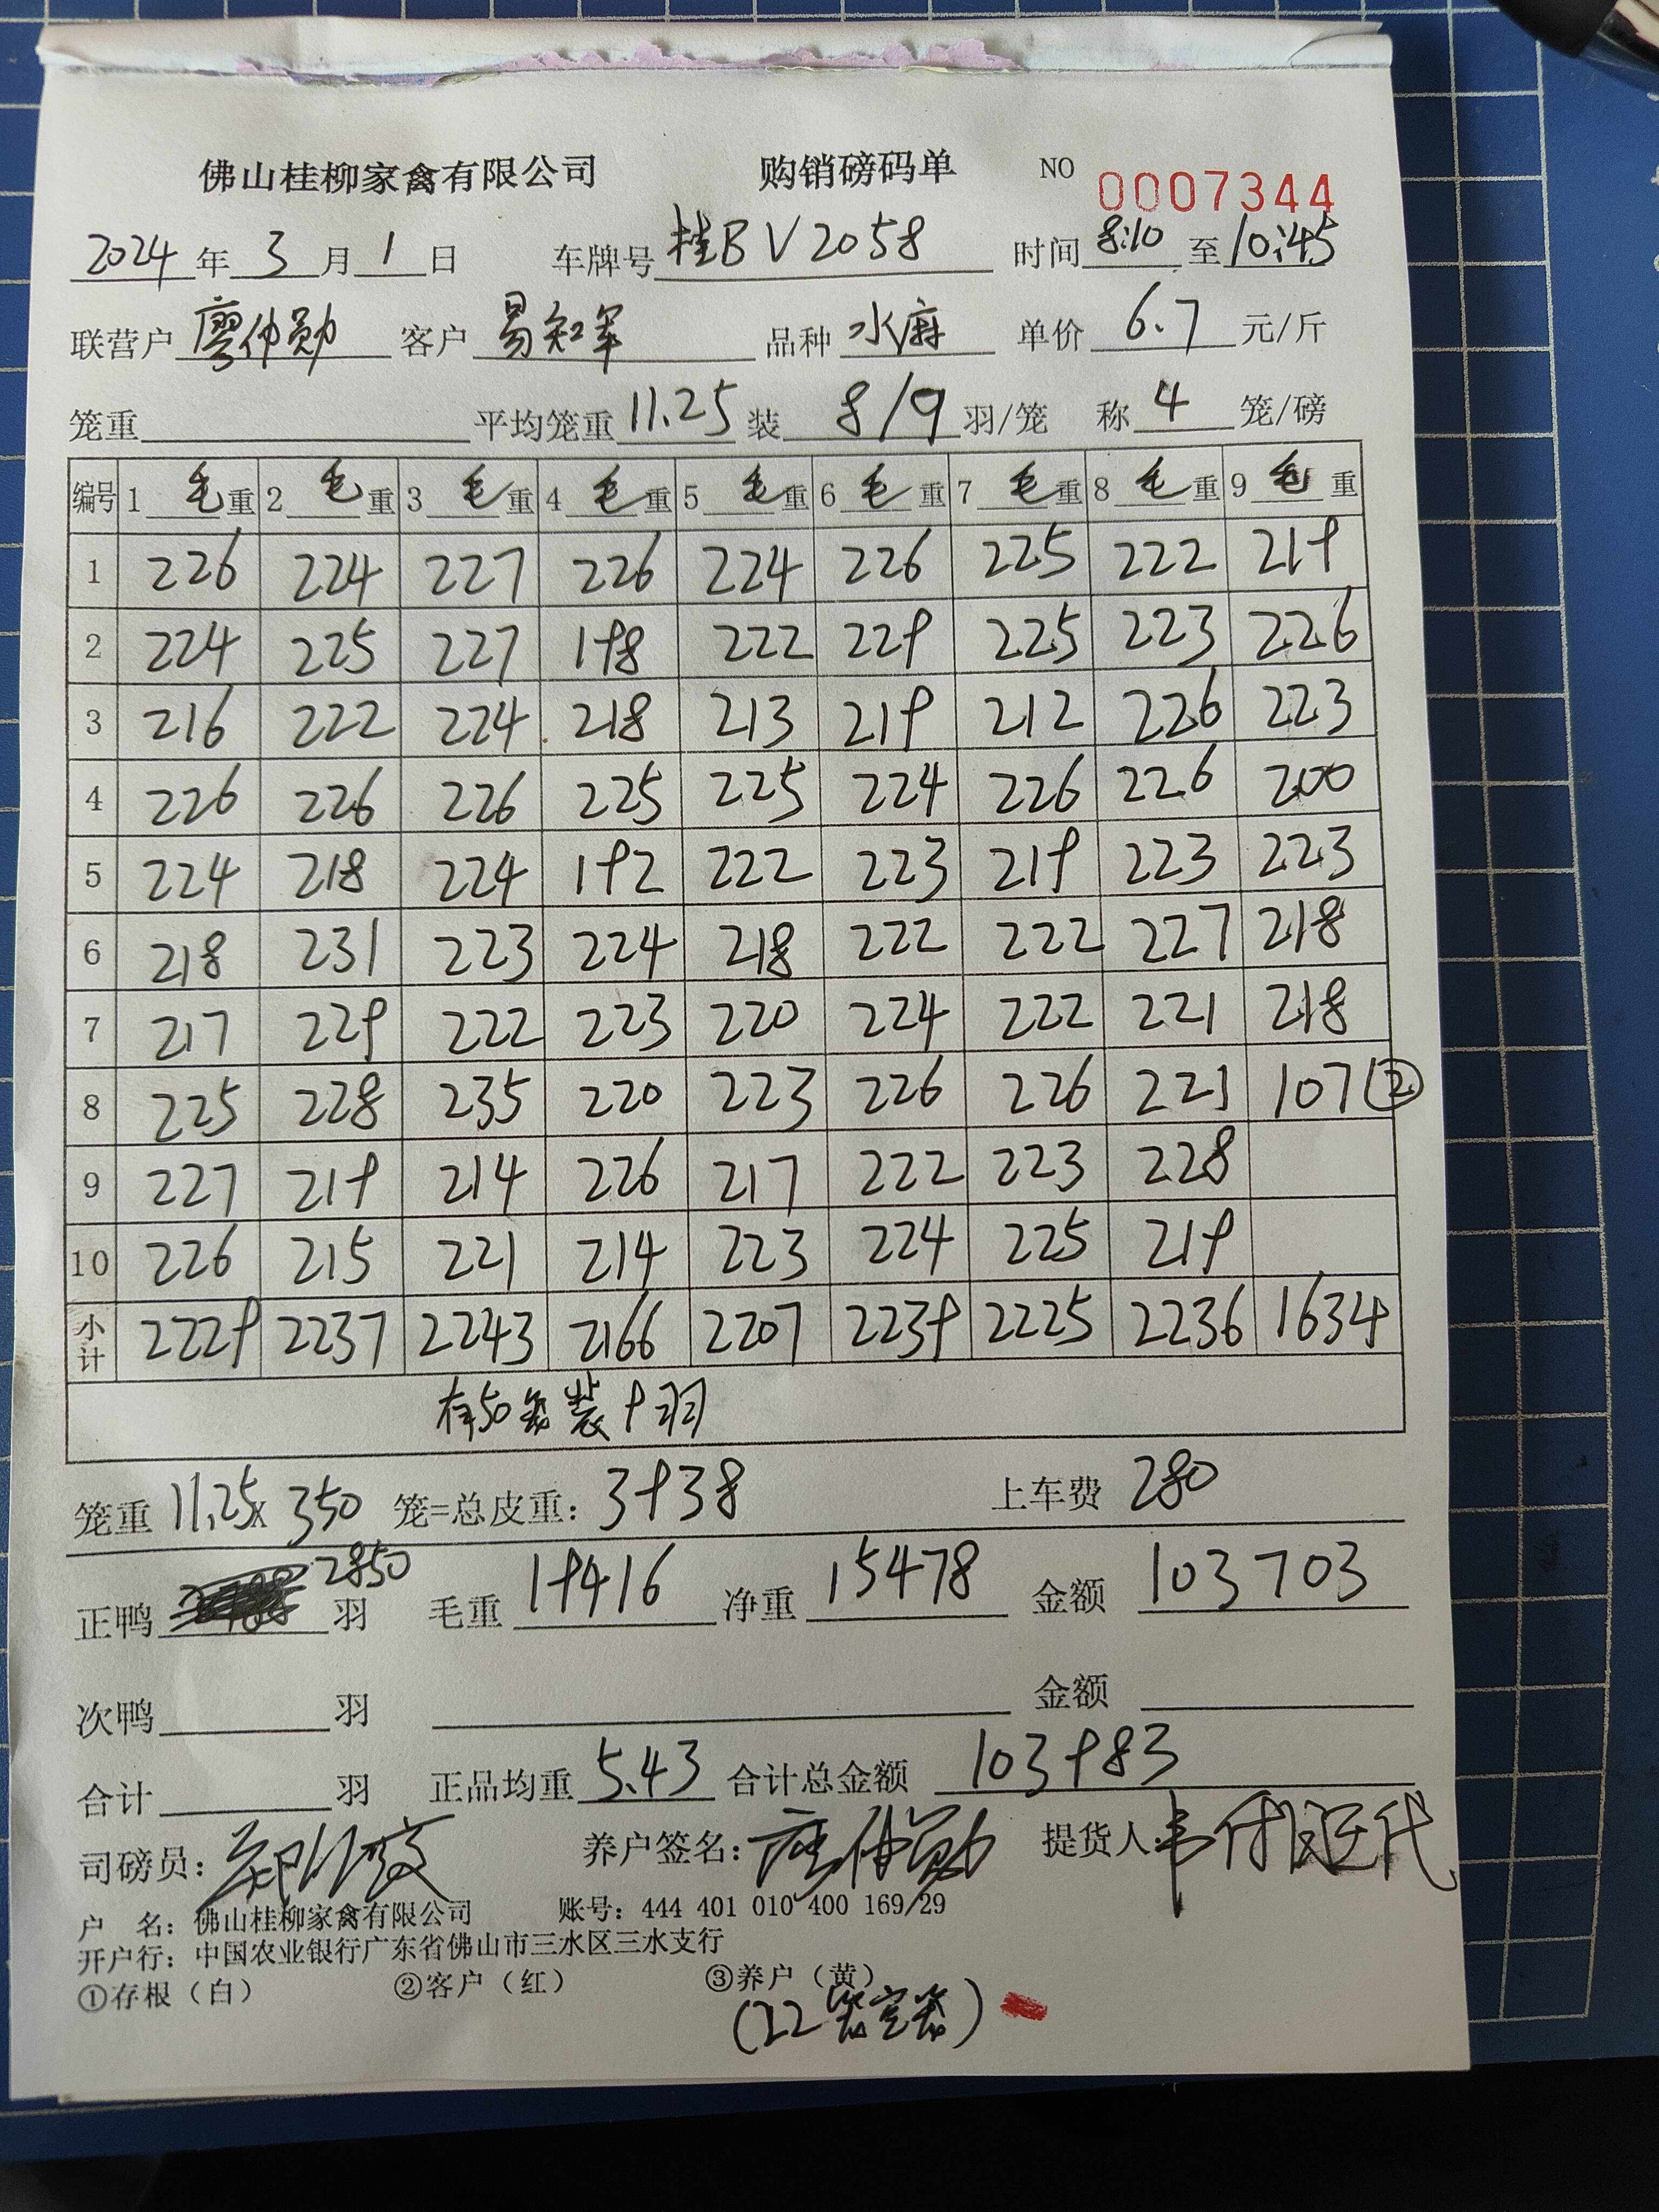 佛山桂柳家禽有限公司 购销磅码单 NO 0007344
2024年3月1日 车牌号桂BV2058 时间8:10至10:45
联营户廖仲勋 客户易知军 品种水麻 单价6.7元/斤
笼重 平均笼重11.25装8/9羽/笼 称4笼/磅
编号 1毛重 2毛重 3毛重 4毛重 5毛重 6毛重 7毛重 8毛重 9毛重
1 226 224 227 226 224 226 225 222 219
2 224 225 227 198 222 229 225 223 226
3 216 222 224 218 213 219 212 226 223
4 226 226 226 225 225 224 226 226 200
5 224 218 224 192 222 223 219 223 223
6 218 231 223 224 218 222 222 227 218
7 217 229 222 223 220 224 222 221 218
8 225 228 235 220 223 226 226 221 107②
9 227 219 214 226 217 222 223 228
10 226 215 221 214 223 224 225 219
小计 2229 2237 2243 2166 2207 2239 2225 2236 1634
有50笼装9羽
笼重11.25x350笼=总皮重:3938 上车费280
正鸭2850羽 毛重19416 净重15478 金额103703
次鸭 羽 金额
合计 羽 正品均重5.43 合计总金额103983
司磅员: 养户签名:廖仲勋 提货人:
户 名:佛山桂柳家禽有限公司 账号:444 401 010 400 169/29
开户行:中国农业银行广东省佛山市三水区三水支行
①存根(白) ②客户(红) ③养户(黄)
(22笼空笼)